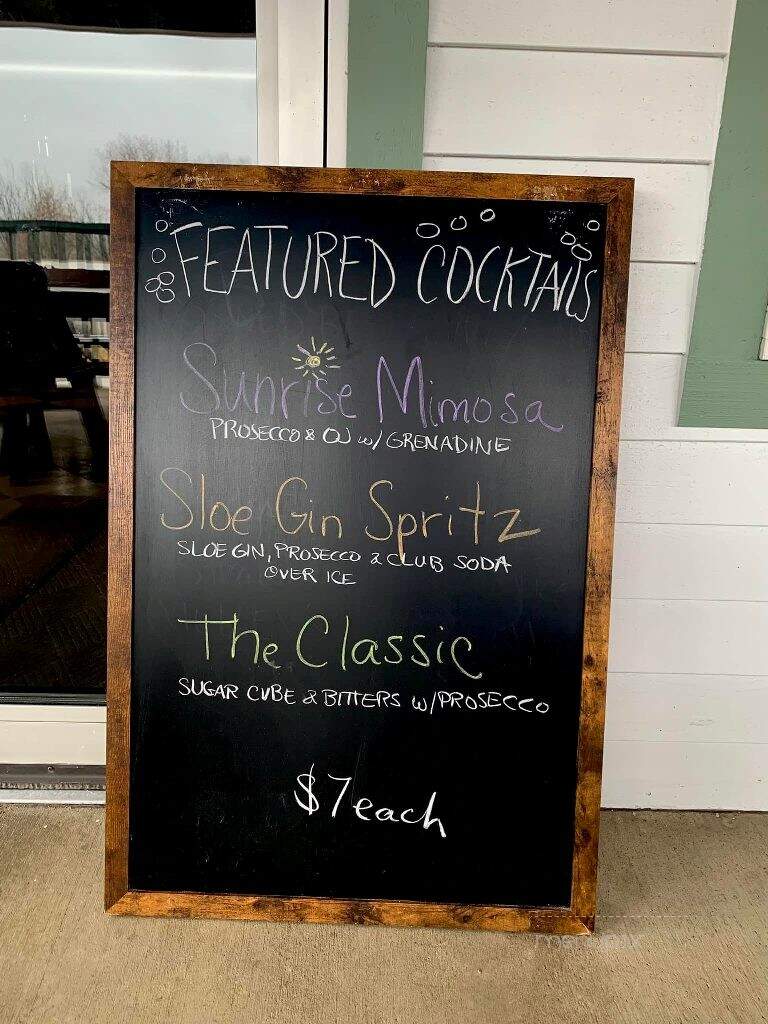 FEATURED COCKTAILS
Sunrise Mimosa
PROSECCO & OJ w/ GRENADINE
Sloe Gin Spritz
SLOE GIN, PROSECCO & CLUB SODA
OVER ICE
The Classic
SUGAR CUBE & BITTERS w/PROSECCO
$7 each